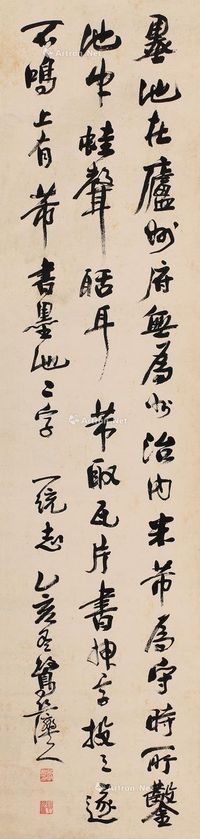 墨池在廬州府無為州治內米芾為守時所鑿
池中蛙聲聒耳芾取瓦片書押字投之遂
不鳴上有芾書墨池二字 一統志 乙亥冬